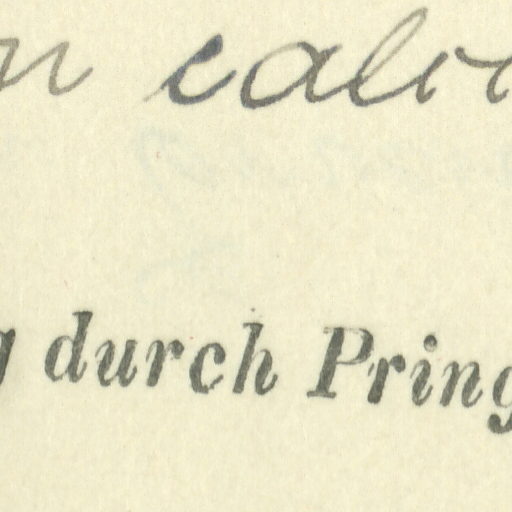 n cali
g durch Pring